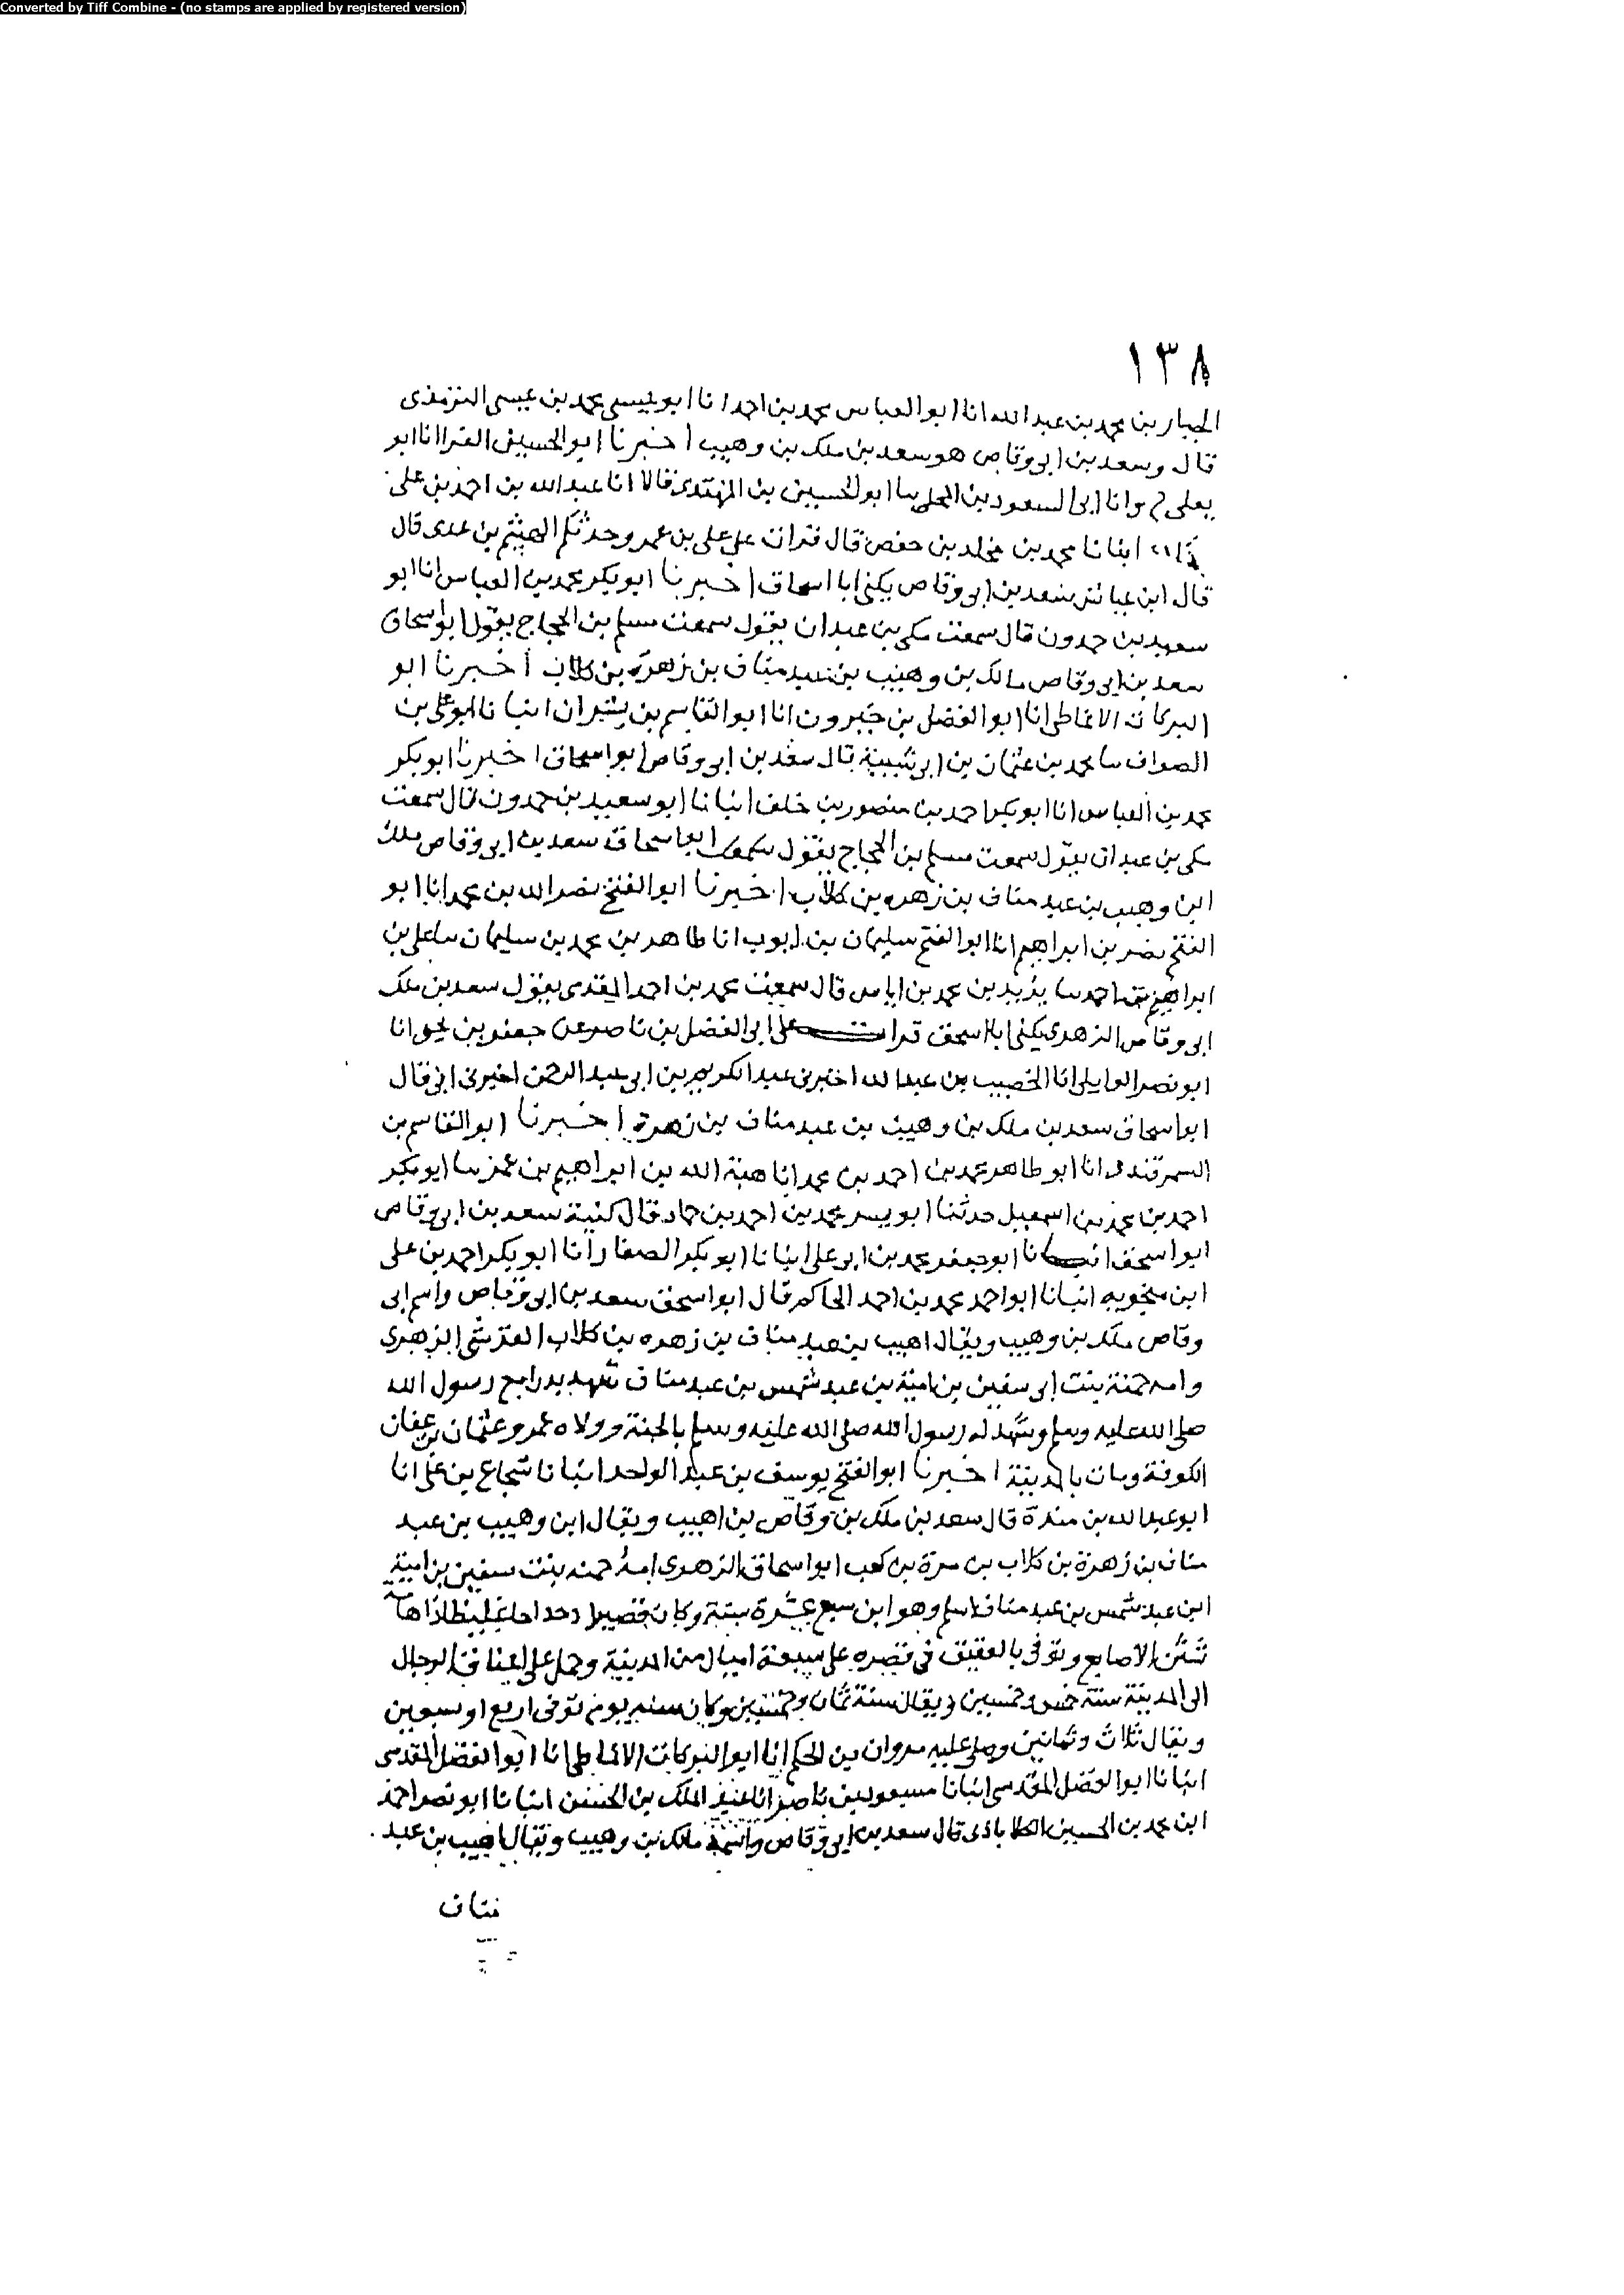 Converted by Tiff Combine - (no stamps are applied by registered version)
١٣٨
الجبار بن محمد بن عبد الله انا ابو العباس محمد بن احمد انا ابو عيسى محمد بن عيسى الترمذى
قال وسعد بن ابى وقاص هو سعد بن ملك بن وهيب اخبرنا ابو الحسين الفرا انا ابو
يعلى ح وانا ابى السعود بن المجلى سا ابو الحسين بن المهتدى قالا انا عبد الله بن احمد بن على
ابنانا محمد بن مخلد بن حفص قال قرات على على بن عمرو حدثكم الهيثم بن عدى قال
قال ابن عياش سعد بن ابى وقاص يكنى ابا اسحاق اخبرنا ابو بكر محمد بن العباس انا ابو
سعيد بن حمدون قال سمعت مكى بن عبدان يقول سمعت مسلم بن الحجاج يقول ابو اسحاق
سعد بن ابى وقاص مالك بن وهيب بن عبد مناف بن زهرة بن كلاب اخبرنا ابو
البركات الانماطى انا ابو الفضل بن خيرون انا ابو القاسم بن بشران انبانا ابو على بن
الصواف سا محمد بن عثمان بن ابى شيبة قال سعد بن ابى وقاص ابو اسحاق اخبرنا ابو بكر
محمد بن العباس انا ابو بكر احمد بن منصور بن خلف انبانا ابو سعيد بن حمدون قال سمعت
مكى بن عبدان يقول سمعت مسلم بن الحجاج يقول ابو اسحاق سعد بن ابى وقاص ملك
ابن وهيب بن عبد مناف بن زهره بن كلاب اخبرنا ابو الفتح نصر الله بن محمد انا ابو
الفتح نصر بن ابراهيم انا ابو الفتح سليمان بن ايوب انا طاهر بن محمد بن سليمان سا على بن
ابراهيم بن احمد سا يزيد بن محمد بن اياس قال سمعت محمد بن احمد المقدمى يقول سعد بن ملك
ابى وقاص الزهرى يكنى ابا اسحق قرات على ابى الفضل بن ناصر عن جعفر بن يحيى انا
ابو نصر الوايلى انا الخصيب بن عبد الله اخبرنى عبد الكريم بن ابى عبد الرحمن اخبرنى ابى قال
ابو اسحاق سعد بن ملك بن وهيب بن عبد مناف بن زهرة اخبرنا ابو القاسم بن
السمرقندى انا ابو طاهر محمد بن احمد بن محمد انا هبة الله بن ابراهيم بن عمر سا ابو بكر
احمد بن محمد بن اسمعيل حدثنا ابو بشر محمد بن احمد بن حماد قال كنية سعد بن ابى وقاص
ابو اسحق انبانا ابو جعفر محمد بن ابى على انبانا ابو بكر الصفار انا ابو بكر احمد بن على
ابن منجويه انبانا ابو احمد محمد بن احمد الحاكم قال ابو اسحق سعد بن ابى وقاص واسم ابى
وقاص ملك بن وهيب ويقال اهيب بن عبد مناف بن زهره بن كلاب القرشى الزهرى
وامه حمنة بنت ابى سفين بن امية بن عبد شمس بن عبد مناف شهد بدرا مع رسول الله
صلى الله عليه وسلم وشهد له رسول الله صلى الله عليه وسلم بالجنة وولاه عمر وعثمان بن عفان
الكوفة ومات بالمدينة اخبرنا ابو الفتح يوسف بن عبد الواحد انبانا شجاع بن على انا
ابو عبد الله بن مندة قال سعد بن ملك بن وقاص بن اهيب ويقال ابن وهيب بن عبد
مناف بن زهرة بن كلاب بن مرة بن كعب ابو اسحاق الزهرى امه حمنه بنت سفين بن امية
ابن عبد شمس بن عبد مناف اسلم وهو ابن سبع عشرة سنة وكان قصيرا دحداحا غليظا ذا هامة
شثن الاصابع وتوفى بالعقيق فى قصره على سبعة اميال من المدينة وحمل على اعناق الرجال
الى المدينة سنة خمس وخمسين ويقال سنة ثمان وخمسين وكان سنه يوم توفى اربع او سبعين
ويقال ثلاث وثمانين وصلى عليه مروان بن الحكم انا ابو البركات الانماطى انا ابو الفضل المقدسى
انبانا ابو الفضل المقدسى انبانا مسعود بن ناصر انا عبد الملك بن الحسن انبانا ابو نصر احمد
ابن محمد بن الحسين الكلاباذى قال سعد بن ابى وقاص واسمه مالك بن وهيب ويقال اهيب بن عبد
مناف